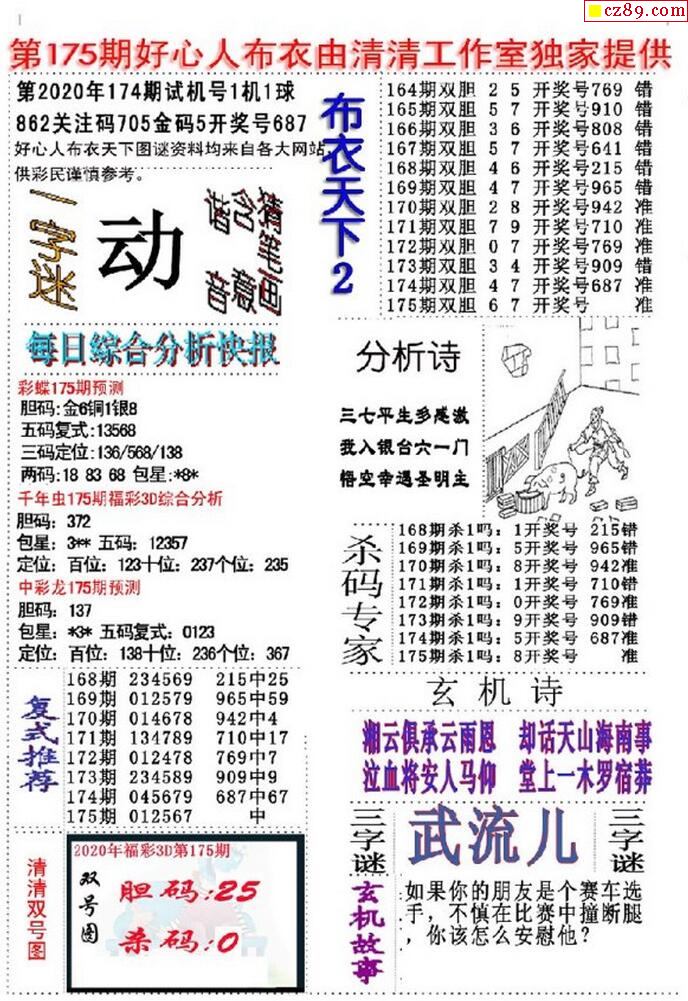 cz89.com
第175期好心人布衣由清清工作室独家提供
第2020年174期试机号1机1球
862关注码705金码5开奖号687
好心人布衣天下图谜资料均来自各大网站,
供彩民谨慎参考。
一字迷
动
谐音
含意
猜笔画
每日综合分析快报
彩蝶175期预测
胆码:金6铜1银8
五码复式:13568
三码定位:136/568/138
两码:18 83 68 包星:*8*
千年虫175期福彩3D综合分析
胆码: 372
包星: 3** 五码: 12357
定位: 百位: 123十位: 237个位: 235
中彩龙175期预测
胆码: 137
包星: *3* 五码复式: 0123
定位: 百位: 138十位: 236个位: 367
复式推荐
168期 234569 215中25
169期 012579 965中59
170期 014678 942中4
171期 134789 710中17
172期 012478 769中7
173期 234589 909中9
174期 045679 687中67
175期 012567 中
清清双号图
2020年福彩3D第175期
双号图
胆码:25
杀码:0
布衣天下2
164期双胆 2 5 开奖号769 错
165期双胆 5 7 开奖号910 错
166期双胆 3 6 开奖号808 错
167期双胆 5 7 开奖号641 错
168期双胆 4 6 开奖号215 错
169期双胆 4 7 开奖号965 错
170期双胆 2 8 开奖号942 准
171期双胆 7 9 开奖号710 准
172期双胆 0 7 开奖号769 准
173期双胆 3 4 开奖号909 错
174期双胆 4 7 开奖号687 准
175期双胆 6 7 开奖号 准
分析诗
三七平生多感激
我入银台六一门
悟空幸遇圣明主
杀码专家
168期杀1吗: 1开奖号 215错
169期杀1吗: 5开奖号 965错
170期杀1吗: 8开奖号 942准
171期杀1吗: 1开奖号 710错
172期杀1吗: 0开奖号 769准
173期杀1吗: 9开奖号 909错
174期杀1吗: 5开奖号 687准
175期杀1吗: 8开奖号 准
玄机诗
湘云俱承云雨恩 却话天山海南事
泣血将安人马仰 堂上一木罗宿莽
三字谜
武流儿
三字谜
玄机故事
如果你的朋友是个赛车选
手，不慎在比赛中撞断腿
，你该怎么安慰他？